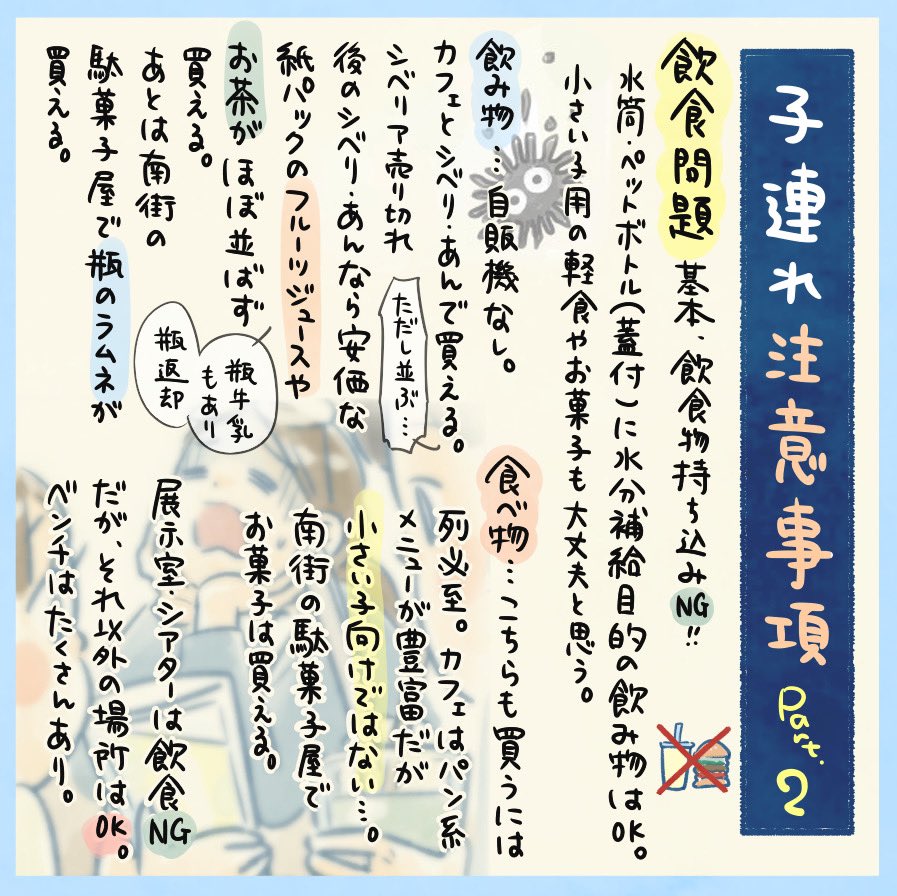 子連れ注意事項 Part.2
飲食問題 基本、飲食物持ち込みNG!!
水筒・ペットボトル(蓋付)に水分補給目的の飲み物はOK。
小さい子用の軽食やお菓子も大丈夫と思う。
飲み物…自販機なし。
カフェとシベリ・あんで買える。
シベリア売り切れ
ただし並ぶ…
後のシベリ・あんなら安価な
紙パックのフルーツジュースや
お茶がほぼ並ばず
買える。
瓶牛乳
もあり
あとは南街の
駄菓子屋で瓶のラムネが
買える。
瓶返却
食べ物…こちらも買うには
列必至。カフェはパン系
メニューが豊富だが
小さい子向けではない…。
南街の駄菓子屋で
お菓子は買える。
展示室・シアターは飲食NG
だが、それ以外の場所はOK。
ベンチはたくさんあり。